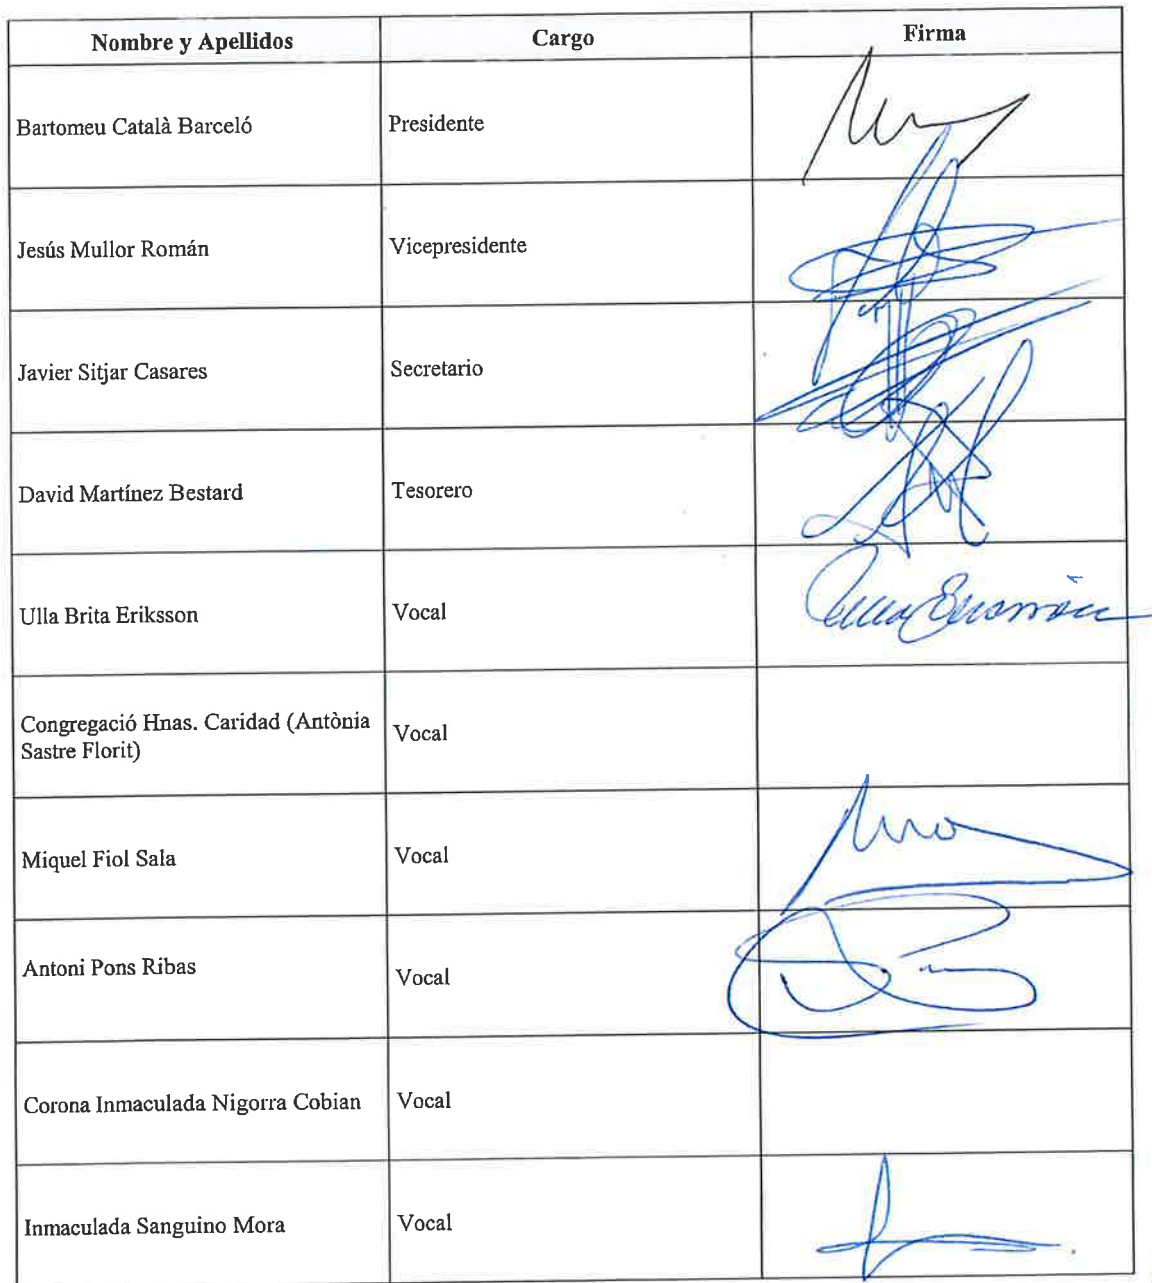 Nombre y Apellidos Cargo Firma
Bartomeu Català Barceló Presidente
Jesús Mullor Román Vicepresidente
Javier Sitjar Casares Secretario
David Martínez Bestard Tesorero
Ulla Brita Eriksson Vocal
Congregació Hnas. Caridad (Antònia
Sastre Florit) Vocal
Miquel Fiol Sala Vocal
Antoni Pons Ribas Vocal
Corona Inmaculada Nigorra Cobian Vocal
Inmaculada Sanguino Mora Vocal